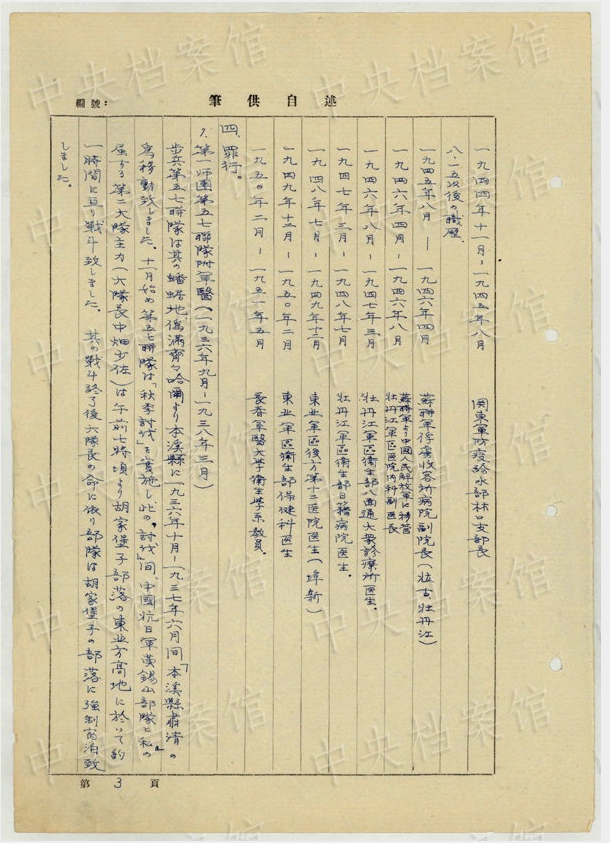 編號：
述自供筆
一九四四年十一月－一九四五年八月　関東軍防疫給水部林口支部長
八·一五以後の職歴．
一九四五年八月－一九四六年四月　蘇聯軍俘虜收容所病院副院長（拉古、牡丹江）
一九四六年四月－一九四六年八月　蘇聯軍より中國人民解放軍に移管　牡丹江軍區医院内科副医長
一九四六年八月－一九四七年三月　牡丹江軍區衛生部八面通大衆診療所医生．
一九四七年三月－一九四八年七月　牡丹江軍區衛生部日籍病院医生．
一九四八年七月－一九四九年十二月　東北軍區後方第十二医院医生（阜新）
一九四九年十二月－一九五〇年二月　東北軍區衛生部保健科医生
一九五〇年二月－一九五一年五月　長春軍醫大学衛生学系教員．
四．罪行。
7．第一师團第五七聯隊附軍醫（一九三六年九月－一九三八年三月）
步兵第五七聯隊は其の蟠踞地偽滿齊々哈爾より本溪縣に一九三六年十月－一九三七年六月间「本溪縣肅清」の
為移動致しました．十一月始め第五七聯隊は「秋季討伐」を實施し、此の「討伐」间、中國抗日軍黄錫山部隊と私の
屬する第二大隊主力（大隊長中畑少佐）は午前七時頃より胡家堡子部落の東北方高地に於いて約
一時間に亘り戰斗致しました．其の戰斗終了後大隊長の命に依り部隊は胡家堡子の部落に強制宿泊致
しました．
第3頁
中央档案馆